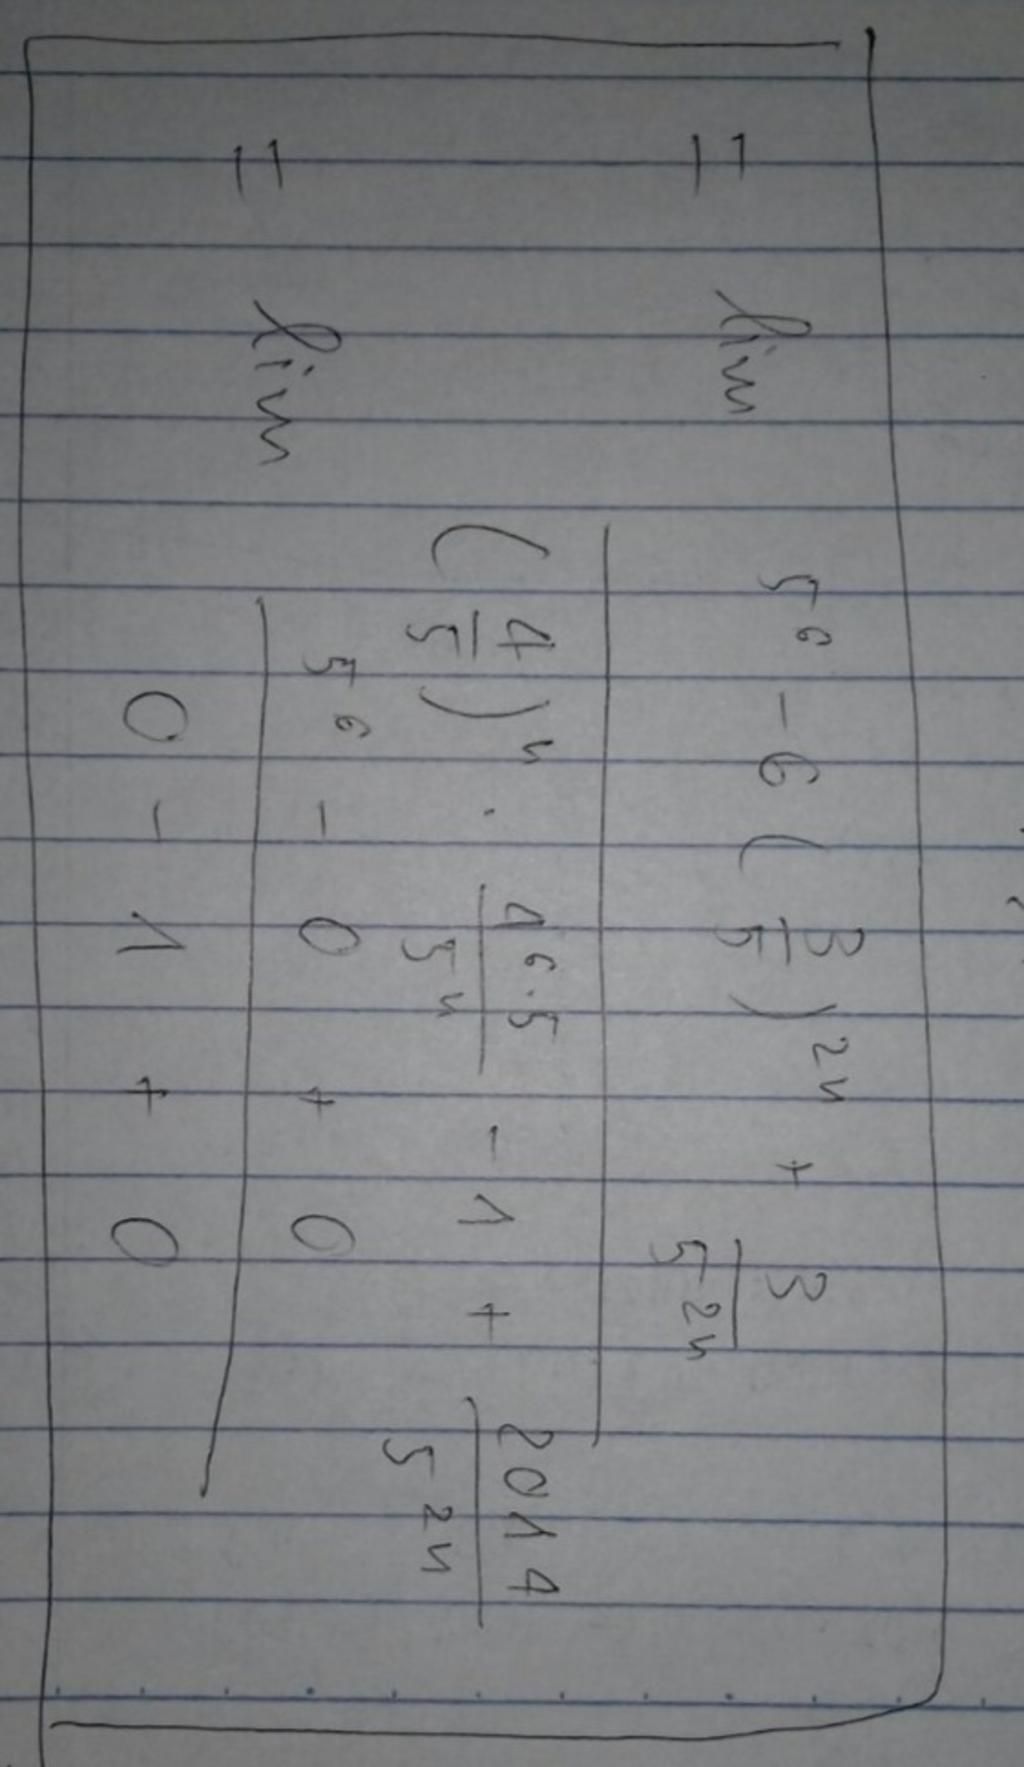 = lim 5^6 - 6 (3/5)^2n + 3/5^2n
(4/5)^n · 4^6·5/5^n - 1 + 2014/5^2n
= lim 5^6 - 0 + 0
0 - 1 + 0